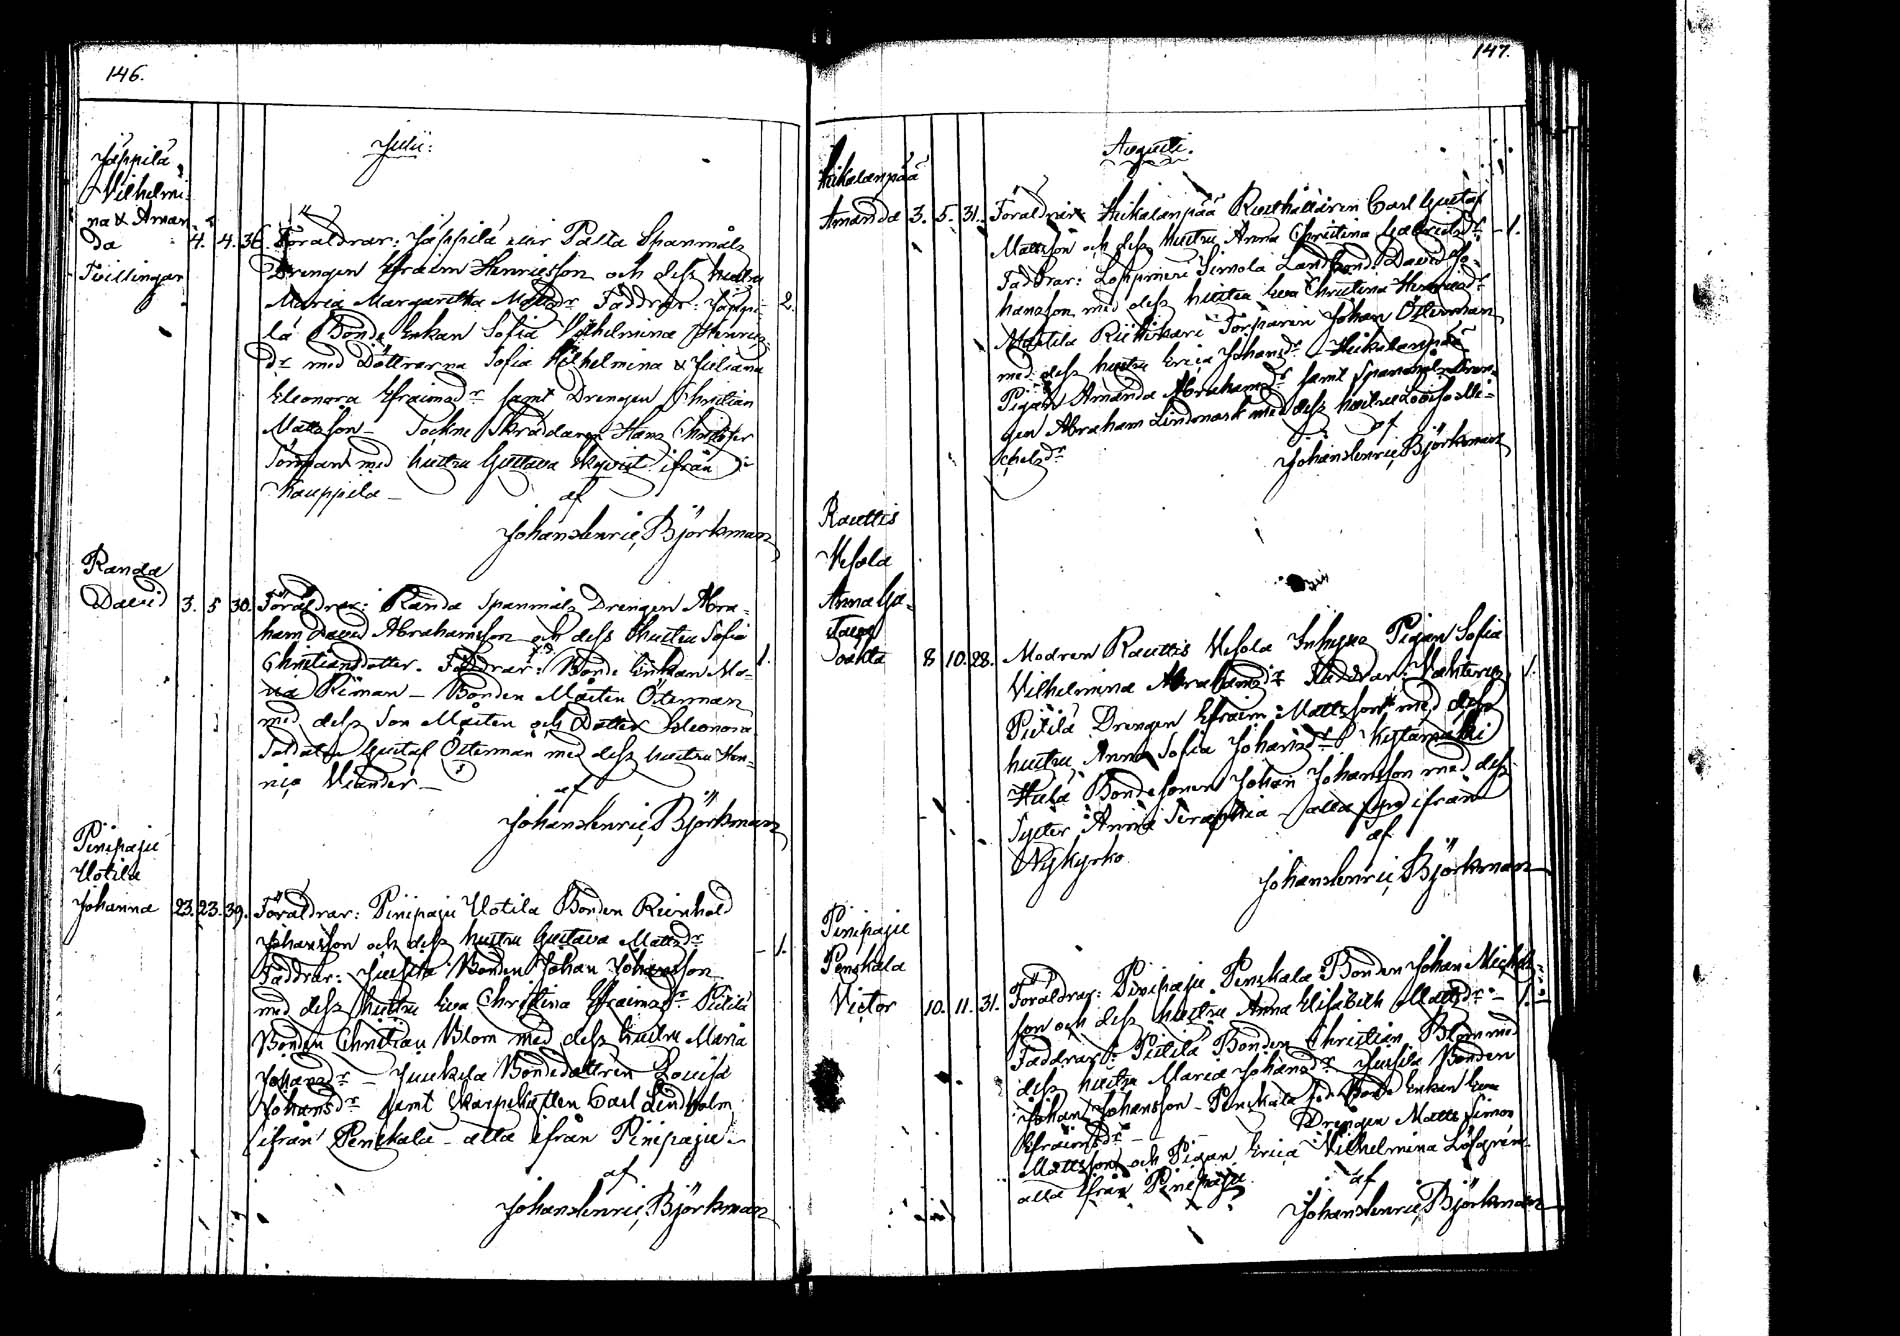 146.
Julii:
Jäppilä
Vilhelmi-
na & Aman
da 4. 4. 36. Föräldrar: Jäppilä eller Palta Spanmåls
Tvillingar
Drengen Efraim Henricsson och dess hustru
Maria Margaretha Mattsdr Faddrar: Jäppi- 2.
lä Bonde Enkan Sofia Vilhelmina Henrics
dr med Döttrarna Sofia Vilhelmina & Juliana
Eleonora Efraimsdr samt Drengen Christian
Mattsson – Sockne Skräddaren Hans Christofer
med hustru Gustava ifrån
Kauppila –
af
Johan Henric Björkman
Randa
David 3. 5 30. Föräldrar: Randa Spanmåls Drengen Abra-
ham David Abrahamsson och dess hustru Sofia
Christiansdotter. Faddrar: Bonde Enkan Ma- 1.
ria – Bonden Mårten Österman
med dess Son Mårten och Dotter Eleonora
Soldaten Gustaf Österman med dess hustru Hen-
rica –
af
Johan Henric Björkman
Pinipaju
Uotila
Johanna 23. 23. 39. Föräldrar: Pinipaju Uotila Bonden Reinhold
Johansson och dess hustru Gustava Mattsdr – 1.
Faddrar: Jussila Bonden Johan Johansson
med dess hustru Eva Christina Efraimsdr Pietilä
Bonden Christian Blom med dess hustru Maria
Johansdr – Juukela Bondedottren Lovisa
Johansdr samt Carl Lindholm
ifrån Penskala – alla ifrån Pinipaju –
af
Johan Henric Björkman
147.
Augusti.
Heikolanpää
Amanda 3. 5. 31. Föräldrar: Heikolanpää Rusthållaren Carl Gustaf
Mattsson och dess hustru Anna Christina Gabrielsdr – 1.
Faddrar: Simola Landbond. David Jo-
hansson med dess hustru Eva Christina
Torparen Johan Österman
med dess hustru Erica Johansdr – Heikolanpää
Pigan Amanda Abrahamsdr samt Spanmåls Dren-
gen Abraham Lindroos med dess hustru Lovisa Mi-
chelsdr
af
Johan Henric Björkman
Rautus
Vesola
Anna Ga-
Oäkta 8 10. 28. Modren Rautus Vesola Inhyses Pigan Sofia
Vilhelmina Abrahamsdr Faddrar: 1.
Pietilä Drengen Efraim Mattsson med dess
hustru Anna Sofia Johansdr
Bondesonen Johan Johansson med dess
Syster Anna Seraphia – alla ifrån
Nykyrko
af
Johan Henric Björkman
Pinipaju
Penskala
Victor 10. 11. 31. Föräldrar: Pinipaju Penskala Bonden Johan Michels-
son och dess hustru Anna Elisabeth Mattsdr – 1.
Faddrar: Pietilä Bonden Christian Blom med
dess hustru Maria Johansdr Jussila Bonden
Johan Johansson – Penskala Bonde Enkan Eva
Efraimsdr – Drengen Matts Simon
Mattsson och Pigan Erica Vilhelmina Löfgren
alla ifrån Pinipaju
af
Johan Henric Björkman